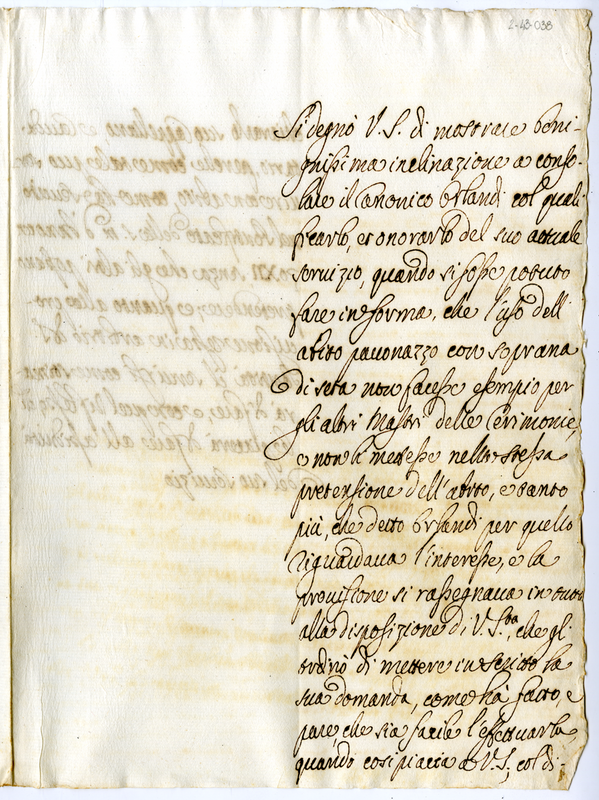 2-43-038
Si degnò V.S. di mostrare beni-
gnissima inclinazione a conso-
lare il Canonico Orlandi col quali-
ficarlo, et onorarlo del suo attuale
servizio, quando si fosse potuto
fare in forma, che l'uso dell'
abito pavonazzo con soprana
di seta non facesse esempio per
gli altri Mastri delle Cerimonie,
e non li mettesse nella stessa
pretensione dell'abito, e tanto
più, che detto Orlandi per quello
riguardava l'interesse, e la
provisione si rassegnava in tutto
alla disposizione di V.S.tà, che gli
ordinò di mettere in scritto la
sua domanda, come hà fatto, e
pare, che sia facile l'effettuarla
quando così piaccia a V.S., col di-